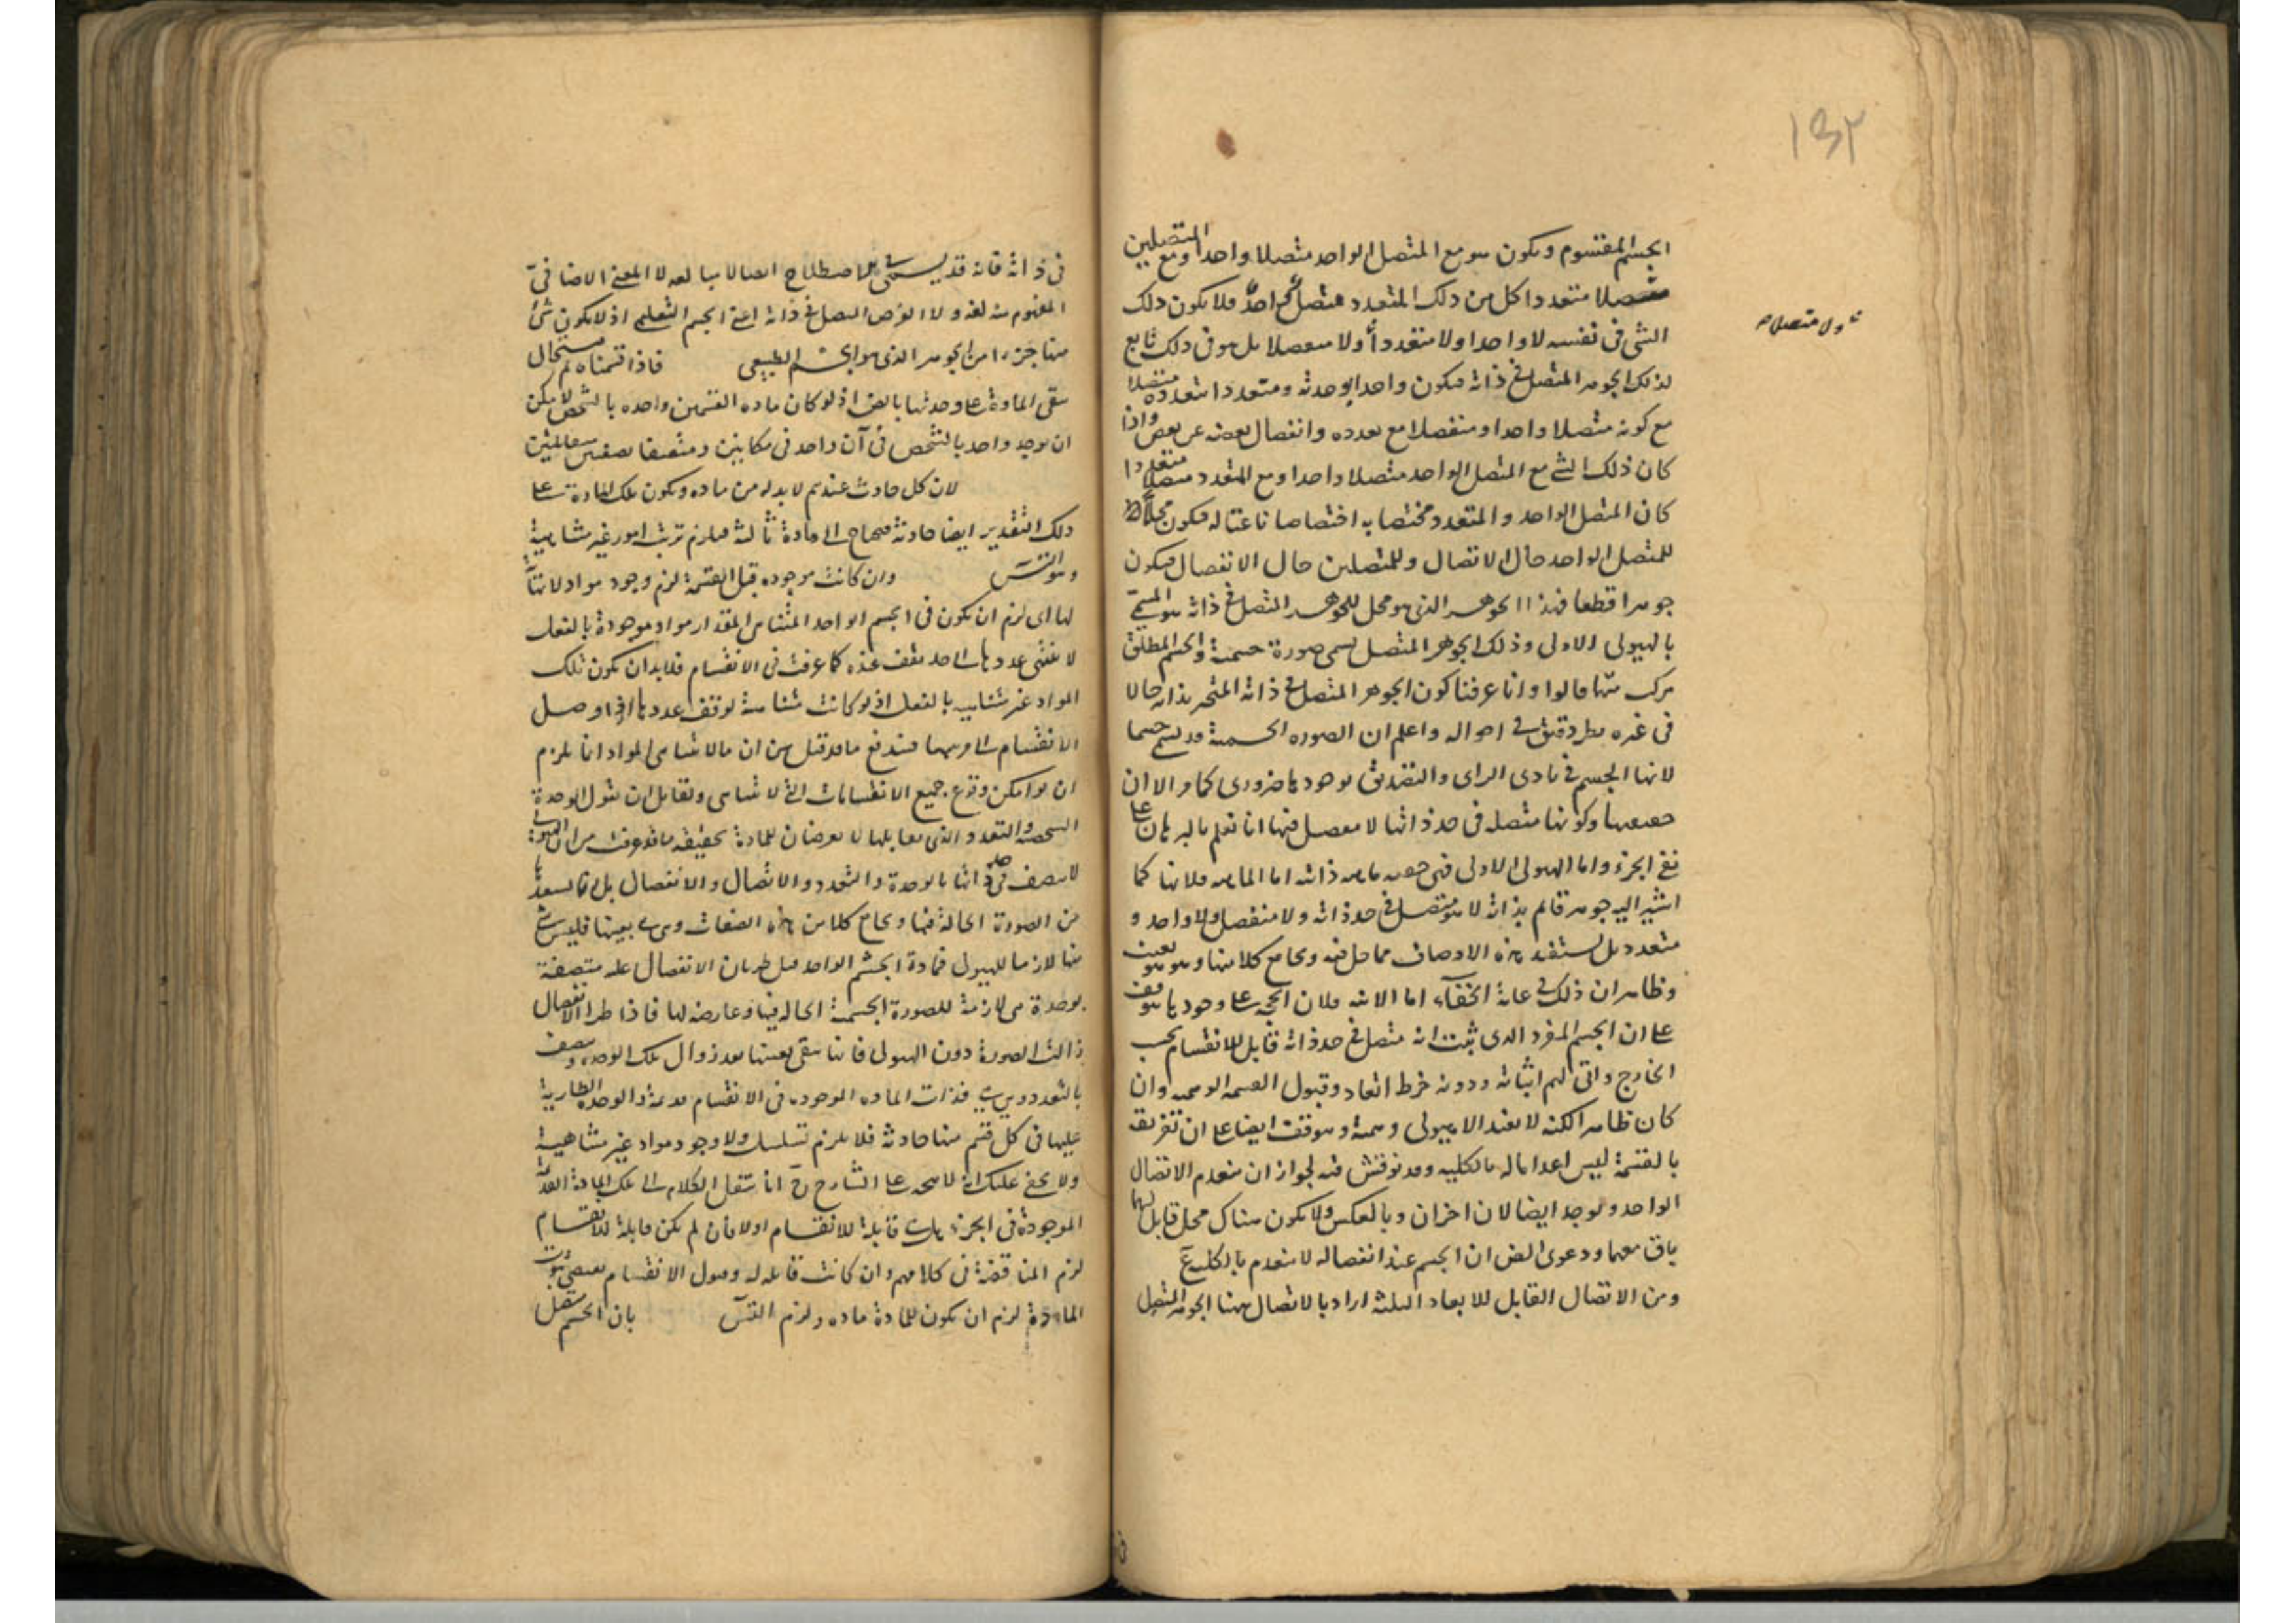 ١٣٢
الجسم المقسوم ويكون هو مع المتصل الواحد متصلا واحدا ومع المتصلين
متعددا كل من ذلك المتعدد متصل واحد فلا يكون ذلك
الشئ في نفسه لا واحدا ولا متعددا ولا منفصلا بل هو في ذلك تابع
ولا متصلا
لذلك الجوهر المتصل في ذاته فيكون واحدا بوحدته ومتعددا بتعدده متصلا
مع كونه متصلا واحدا ومنفصلا مع تعدده وانفصال بعضه عن بعض واذا
كان ذلك الشئ مع المتصل الواحد متصلا واحدا ومع المتعدد منفصلا متعددا
كان المتصل الواحد والمتعدد مختصا به اختصاصا ناعتا له فيكون محلا
للمتصل الواحد حال الاتصال وللمتصلين حال الانفصال فيكون
جوهرا قطعا فهذا الجوهر الذي هو محل للجوهر المتصل في ذاته هو المسمى
بالهيولى الاولى وذلك الجوهر المتصل يسمى صورة جسمية والجسم المطلق
مركب منهما قالوا وانا عرفنا كون الجوهر المتصل في ذاته المتحيز بذاته حالا
في غيره بطريق في احواله واعلم ان الصورة الجسمية قد يسمى جسما
لانها الجسم في بادى الراى والتصديق بوجودها ضروري كما مر الا ان
حقيقتها وكونها متصلة في حد ذاتها لا مفصل فيها انما نعلم بالبرهان على
نفي الجزء واما الهيولى الاولى ففي اما الماهية فلانها كما
اشير اليه جوهر قائم بذاته لا هو متصل في حد ذاته ولا منفصل ولا واحد و
متعدد بل يستفيد هذه الاوصاف مما حل فيه ويجامع كلا منها وهو هو بعينه
وظاهر ان ذلك في غاية الخفاء اما الانية فلان الحجة على وجودها موقف
على ان الجسم المفرد الذي يثبت انه متصل في حد ذاته قابل للانقسام بحسب
الخارج وانى لهم اثباته ودونه خرط القتاد وقبول القسمة الوهمية وان
كان ظاهرا لكنه لا يفيد الا هيولى وهمية وموقف ايضا على ان تفريقه
بالقسمة ليس اعداما له بالكلية وقد نوقش فيه لجواز ان ينعدم الاتصال
الواحد ويوجد ايضا لان اخران وبالعكس ولا يكون هناك محل قابل لهما
باق معهما ودعوى ان الجسم عند انفصاله لا ينعدم بالكلية
ومن الاتصال القابل للابعاد الثلثة اراد بالاتصال ههنا الجوهر المتصل
في ذاته فانه قد يسمى في الاصطلاح اتصالا مبالغة لا المعنى الاضافي
المفهوم منه لغة ولا العرض المتصل في ذاته اعني الجسم التعليمي اذ لا يكون شئ
منهما جزءا من الجوهر الذي هو الجسم الطبيعي فاذا قسمناه يستحال
بقي المادة على وحدتها بالشخص اذ لو كان مادة القسمين واحدة بالشخص لامكن
ان يوجد واحد بالشخص في آن واحد في مكانين ومتصفا بصفتين متقابلتين
لان كل حادث عندهم لا بد له من مادة ويكون تلك المادة على
ذلك التقدير ايضا حادثة فيحتاج الى مادة ثالثة فيلزم ترتب امور غير متناهية
وهو التسلسل وان كانت موجودة قبل القسمة لزم وجود مواد لا نهاية
لها اى لزم ان يكون في الجسم الواحد المتناهي المقدار مواد موجودة بالفعل
لا ينتهي عددها الى حد يقف عنده كما عرفت في الانقسام فلا بد ان يكون تلك
المواد غير متناهية بالفعل اذ لو كانت متناهية لوقف عددها اذا وصل
الانقسام الى فيندفع ما قد قيل من ان ما لا يتناهى المواد انما يلزم
ان لو امكن وقوع جميع الانقسامات التي لا تتناهى ولقايل ان يقول الوحدة
الشخصية والتعدد الذي يقابلها لا يعرضان للمادة حقيقة لما قد عرفت من ان الهيولى
لا يتصف في حد ذاتها بالوحدة والتعدد والاتصال والانفصال بل انما يستفيدها
من الصورة الحالة فيها ويجامع كلا من هذه الصفات وهي هي بعينها فليس شئ
منها لازما للهيولى فمادة الجسم الواحد قبل طريان الانفصال عليه متصفة
بوحدة هي لازمة للصورة الجسمية الحالة فيها وعارضة لها فاذا طرا الانفصال
زالت الصورة دون الهيولى فانها تبقى بعينها بعد زوال تلك الوحدة ويتصف
بالتعدد وهي هي فذات المادة الموجودة في الانقسام قديمة والوحدة الطارية
عليها في كل قسم منها حادثة فلا يلزم تسلسل ولا وجود مواد غير متناهية
ولا يخفى عليك انه لا يتجه على الشارح ح انا ننقل الكلام الى تلك المادة القديمة
الموجودة في الجزء هل هي قابلة للانقسام اولا فان لم يكن قابلة للانقسام
لزم المناقضة في كلامهم وان كانت قابلة له وقبول الانقسام يقتضي ثبوت
المادة لزم ان يكون للمادة مادة ولزم التسلسل بان الجسم